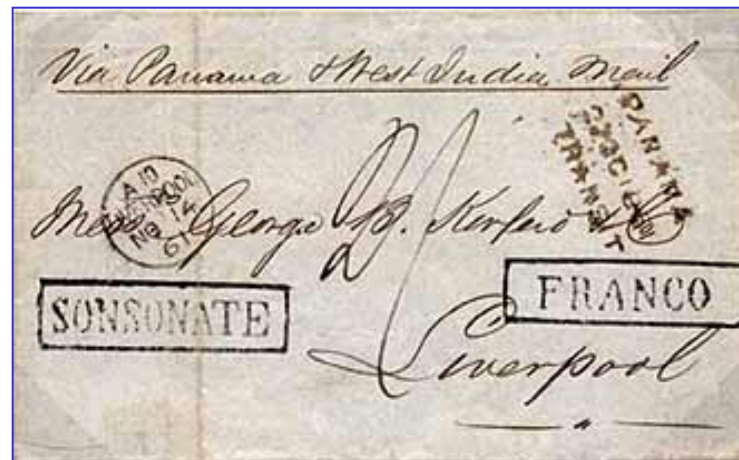 Via Panama & West India Mail
PANAMA
TRANSIT
A D
LIVERPOOL
NO 14
61
Mess George
2/
SONSONATE
FRANCO
Liverpool